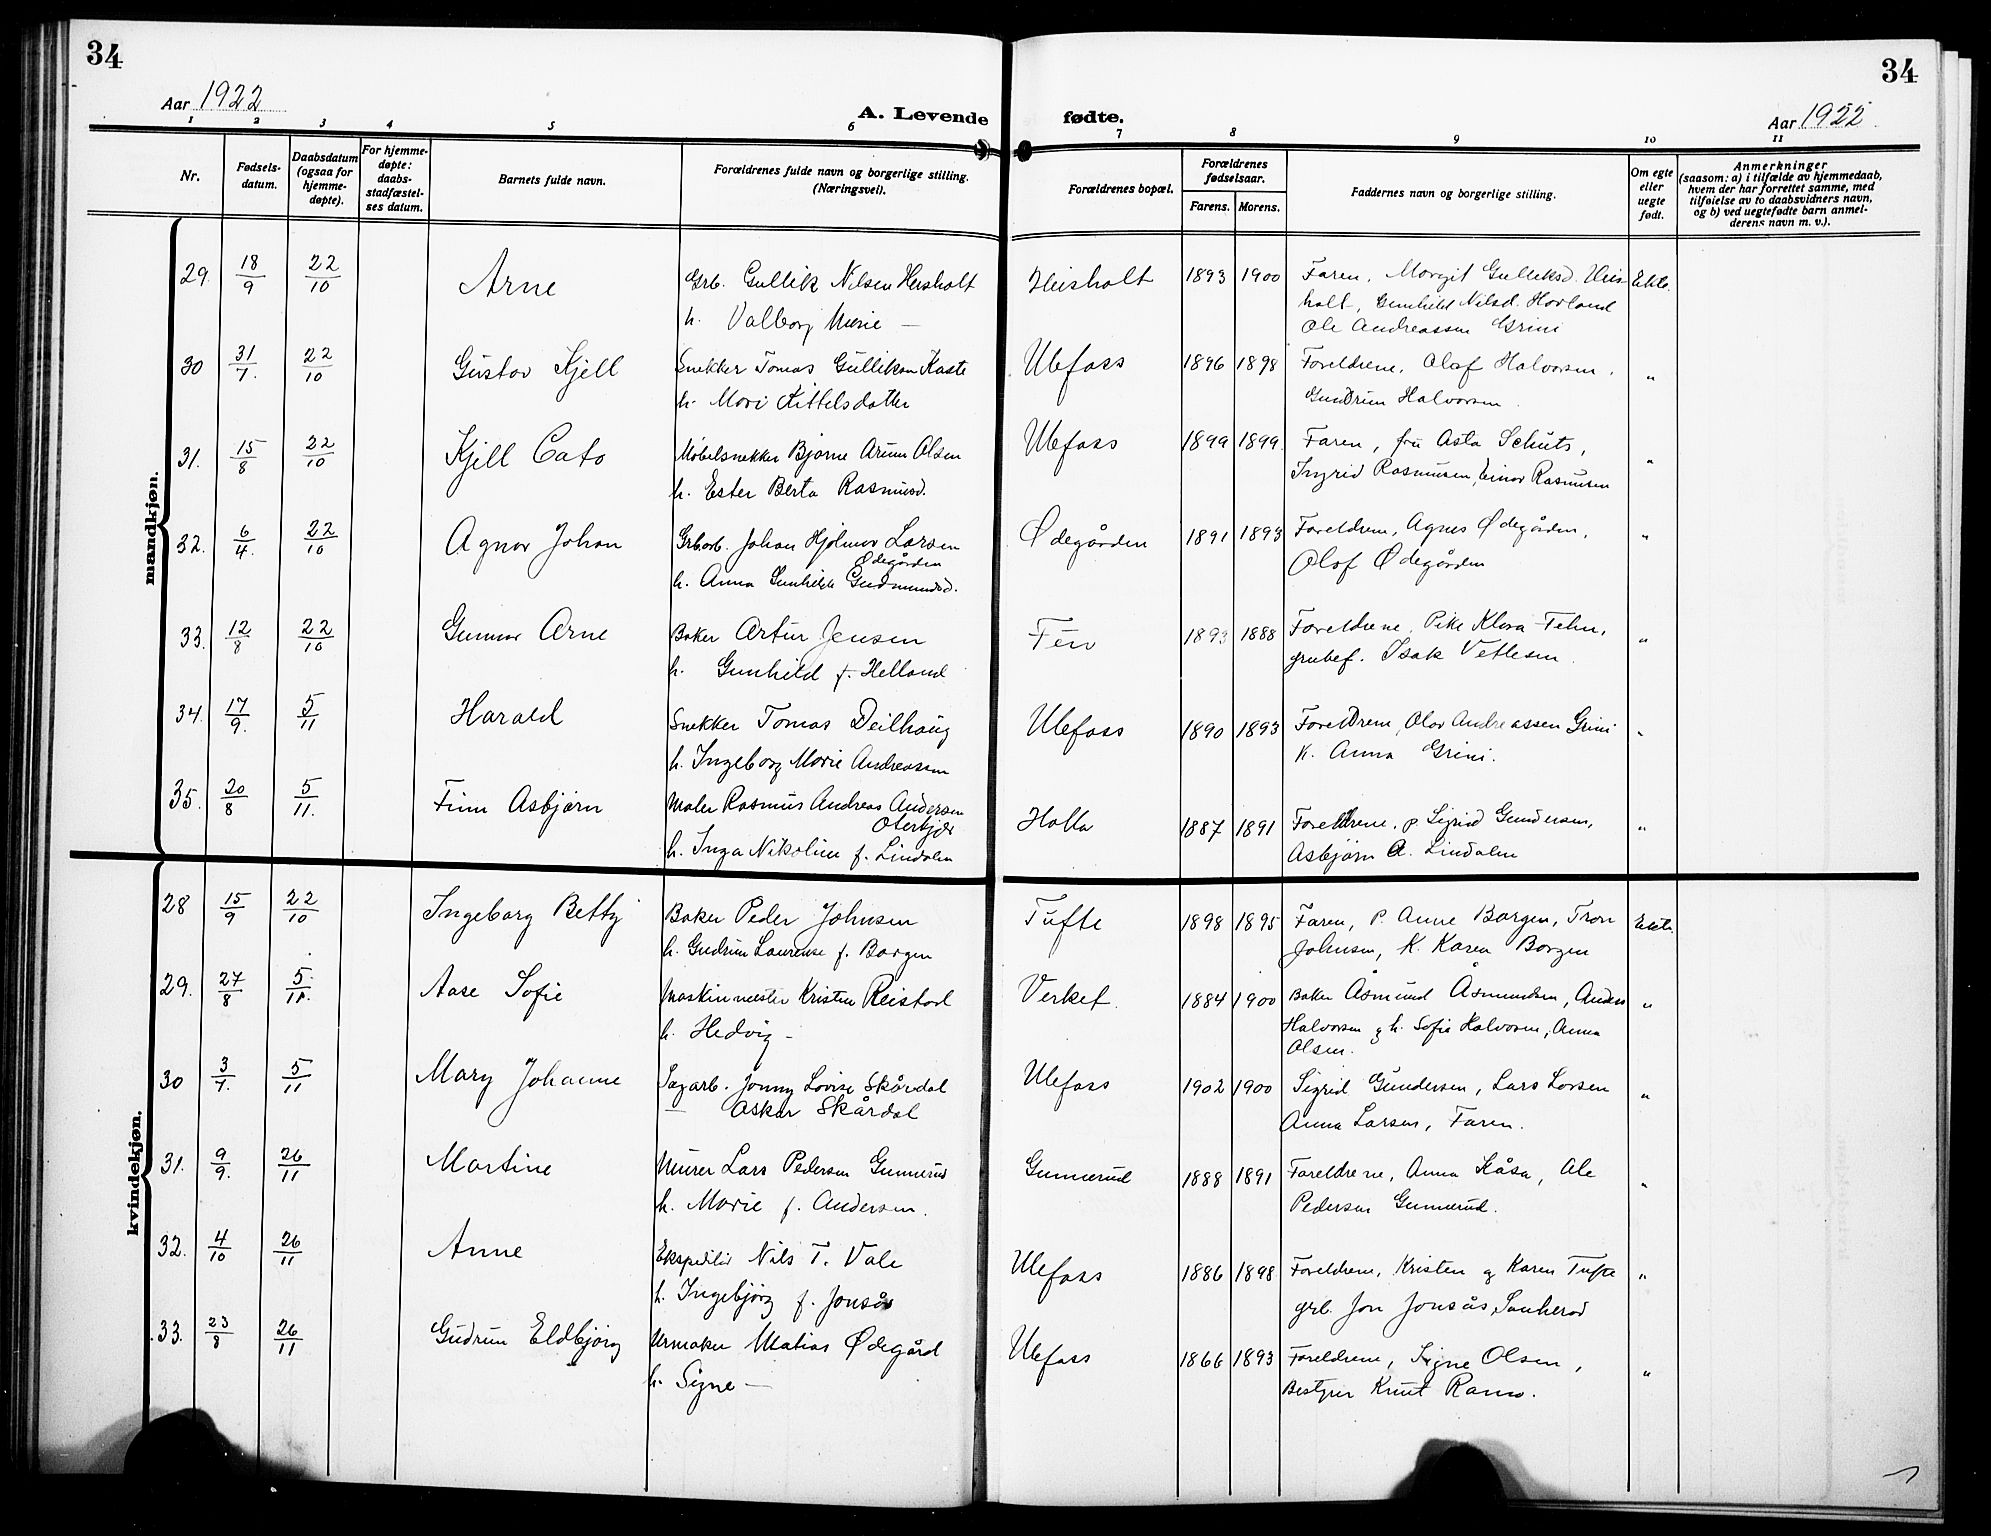 34
34
Aar 1922
A. Levende
fødte.
Aar 1922
1 2 3 4 5 6 7 8 9 10 11
Nr.
Fødsels-
datum.
Daabsdatum
(ogsaa for
hjemme-
døpte).
For hjemme-
døpte:
daabs-
stadfæstel-
ses datum.
Barnets fulde navn.
Forældrenes fulde navn og borgerlige stilling.
(Næringsvei).
Forældrenes bopæl.
Forældrenes
fødselsaar.
Farens. Morens.
Faddernes navn og borgerlige stilling.
Om egte
eller
uegte
født.
Anmerkninger
(saasom: a) i tilfælde av hjemmedaab,
hvem der har forrettet samme, med
tilføielse av to daabsvidners navn,
og b) ved uegtefødte barn anmel-
derens navn m. v.).
mandkjøn.
29. 18/9 22/10 Arne Grb. Gullik Nilsen Heisholt Heisholt 1893 1900 Faren, Margit Gulliksd. Heis- Ekte.
h. Valborg Marie — holt, Gunhild Nilsd. Hovland
Ole Andreassen Grini
30 31/7. 22/10 Gustav Kjell Snekker Tomas Gulliksen Kaste Ulefoss 1896 1898 Foreldrene, Olaf Halvorsen, "
h. Mari Kittelsdatter Gudrun Halvorsen.
31. 15/8 22/10 Kjell Cato Møbelsnekker Bjarne Arum Olsen Ulefoss 1899 1899. Faren, fru Asta Schuts, "
h. Ester Berta Rasmusd. Ingrid Rasmusen, Einar Rasmusen
32. 6/4. 22/10 Agnar Johan Grbarb. Johan Hjalmar Larsen Ødegården 1891 1893 Foreldrene, Agnes Ødegården, "
Ødegården
h. Anna Gunhilde Gudmundsd. Olaf Ødegården
33. 12/8 22/10 Gunnar Arne Baker Artur Jensen Fen 1893 1888 Foreldrene, Pike Klara Fehn, "
h. Gunhild f. Helland grubef. Isak Vetlesen.
34. 17/9. 5/11 Harald Snekker Tomas Deilhaug Ulefoss 1890 1893 Foreldrene, Olav Andreassen Grini "
h. Ingeborg Marie Andreassen K. Anna Grini.
35. 20/8 5/11. Finn Asbjørn Maler Rasmus Andreas Andersen Holla 1887 1891 Foreldrene, p Sigrid Gundersen, "
Oterkjær
h. Inga Nikoline f. Lindalen Asbjørn A. Lindalen
kvindekjøn.
28 15/9 22/10 Ingeborg Betty Baker Peder Johnsen Tufte 1898 1895 Faren, P. Anne Borgen, Tron Ekte.
h. Gudrun Laurense f. Borgen Johnsen, K. Karen Borgen
29. 27/8 5/11. Aase Sofie Maskinmester Kristen Reistad Verket 1884 1900 Baker Åsmund Åsmundsen, Anders "
h. Hedvig — Halvorsen g h. Sofie Halvorsen, Anna
Olsen.
30 3/7. 5/11 Mary Johanne Sagarb. Jonny Lovise Skårdal Ulefoss 1902 1900 Sigrid Gundersen, Lars Larsen "
— Asker Skårdal Anna Larsen, Faren.
31. 9/9. 26/11 Martine Murer Lars Pedersen Gunnerud Gunnerud 1888 1891 Foreldrene, Anna Kåsa, Ole "
h. Marie f. Andersen. Pedersen Gunnerud.
32. 4/10 26/11 Anne Ekspeditør Nils T. Vale Ulefoss 1886 1898 Foreldrene, Kristen g Karen Tufte "
h. Ingebjørg f. Jonsås grb. Jon Jonsås, Sauherad
33. 23/8 26/11 Gudrun Eldbjørg Urmaker Matias Ødegård Ulefoss 1866 1893 Foreldrene, Signe Olsen, "
h. Signe — Bestyrer Knut Ramo.